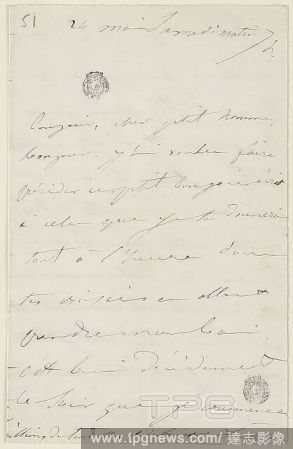 51
24 mai Samedi matin
Bonjour, cher petit homme,
bonjour. J'ai voulu faire
précéder ce petit bonjour écrit
à celui que je te donnerai
tout à l'heure dans
en allant
prendre mon bain.
décidément
le soir que je commence
TPG
www.tpgnews.com/ 達志影像